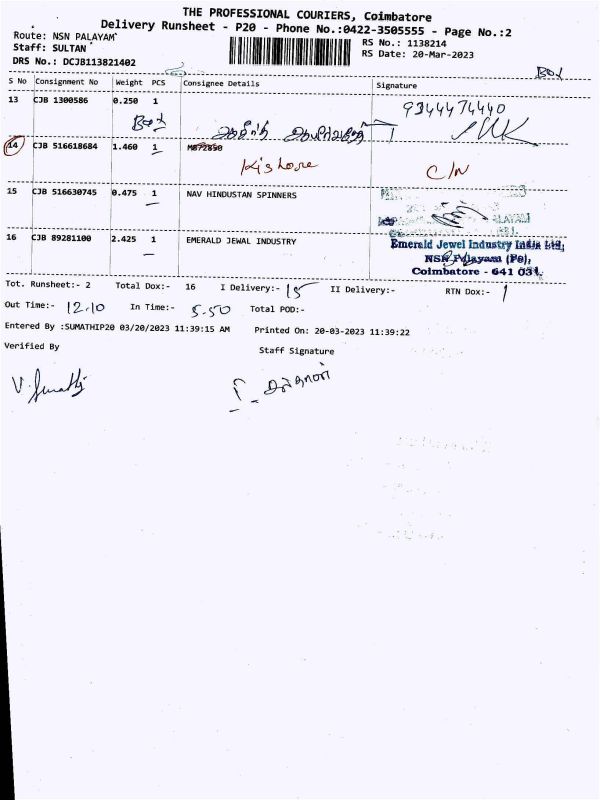 THE PROFESSIONAL COURIERS, Coimbatore
Delivery Runsheet - P20 - Phone No.:0422-3505555 - Page No.:2
Route: NSN PALAYAM
RS No.: 1138214
Staff: SULTAN
RS Date: 20-Mar-2023
DRS No.: DCJB113821402
Box
S No Consignment No Weight PCS Consignee Details Signature
13 CJB 1300586 0.250 1 9344474440
Box
14 CJB 516618684 1.460 1 M872890
Kishore C/N
15 CJB 516630745 0.475 1 NAV HINDUSTAN SPINNERS
16 CJB 89281100 2.425 1 EMERALD JEWAL INDUSTRY
Emerald Jewel Industry India Ltd,
NSN Palayam (Po),
Coimbatore - 641 031.
Tot. Runsheet:- 2 Total Dox:- 16 I Delivery:- 15 II Delivery:- RTN Dox:- 1
Out Time:- 12.10 In Time:- 5.50 Total POD:-
Entered By :SUMATHIP20 03/20/2023 11:39:15 AM Printed On: 20-03-2023 11:39:22
Verified By Staff Signature
V. Sumathi